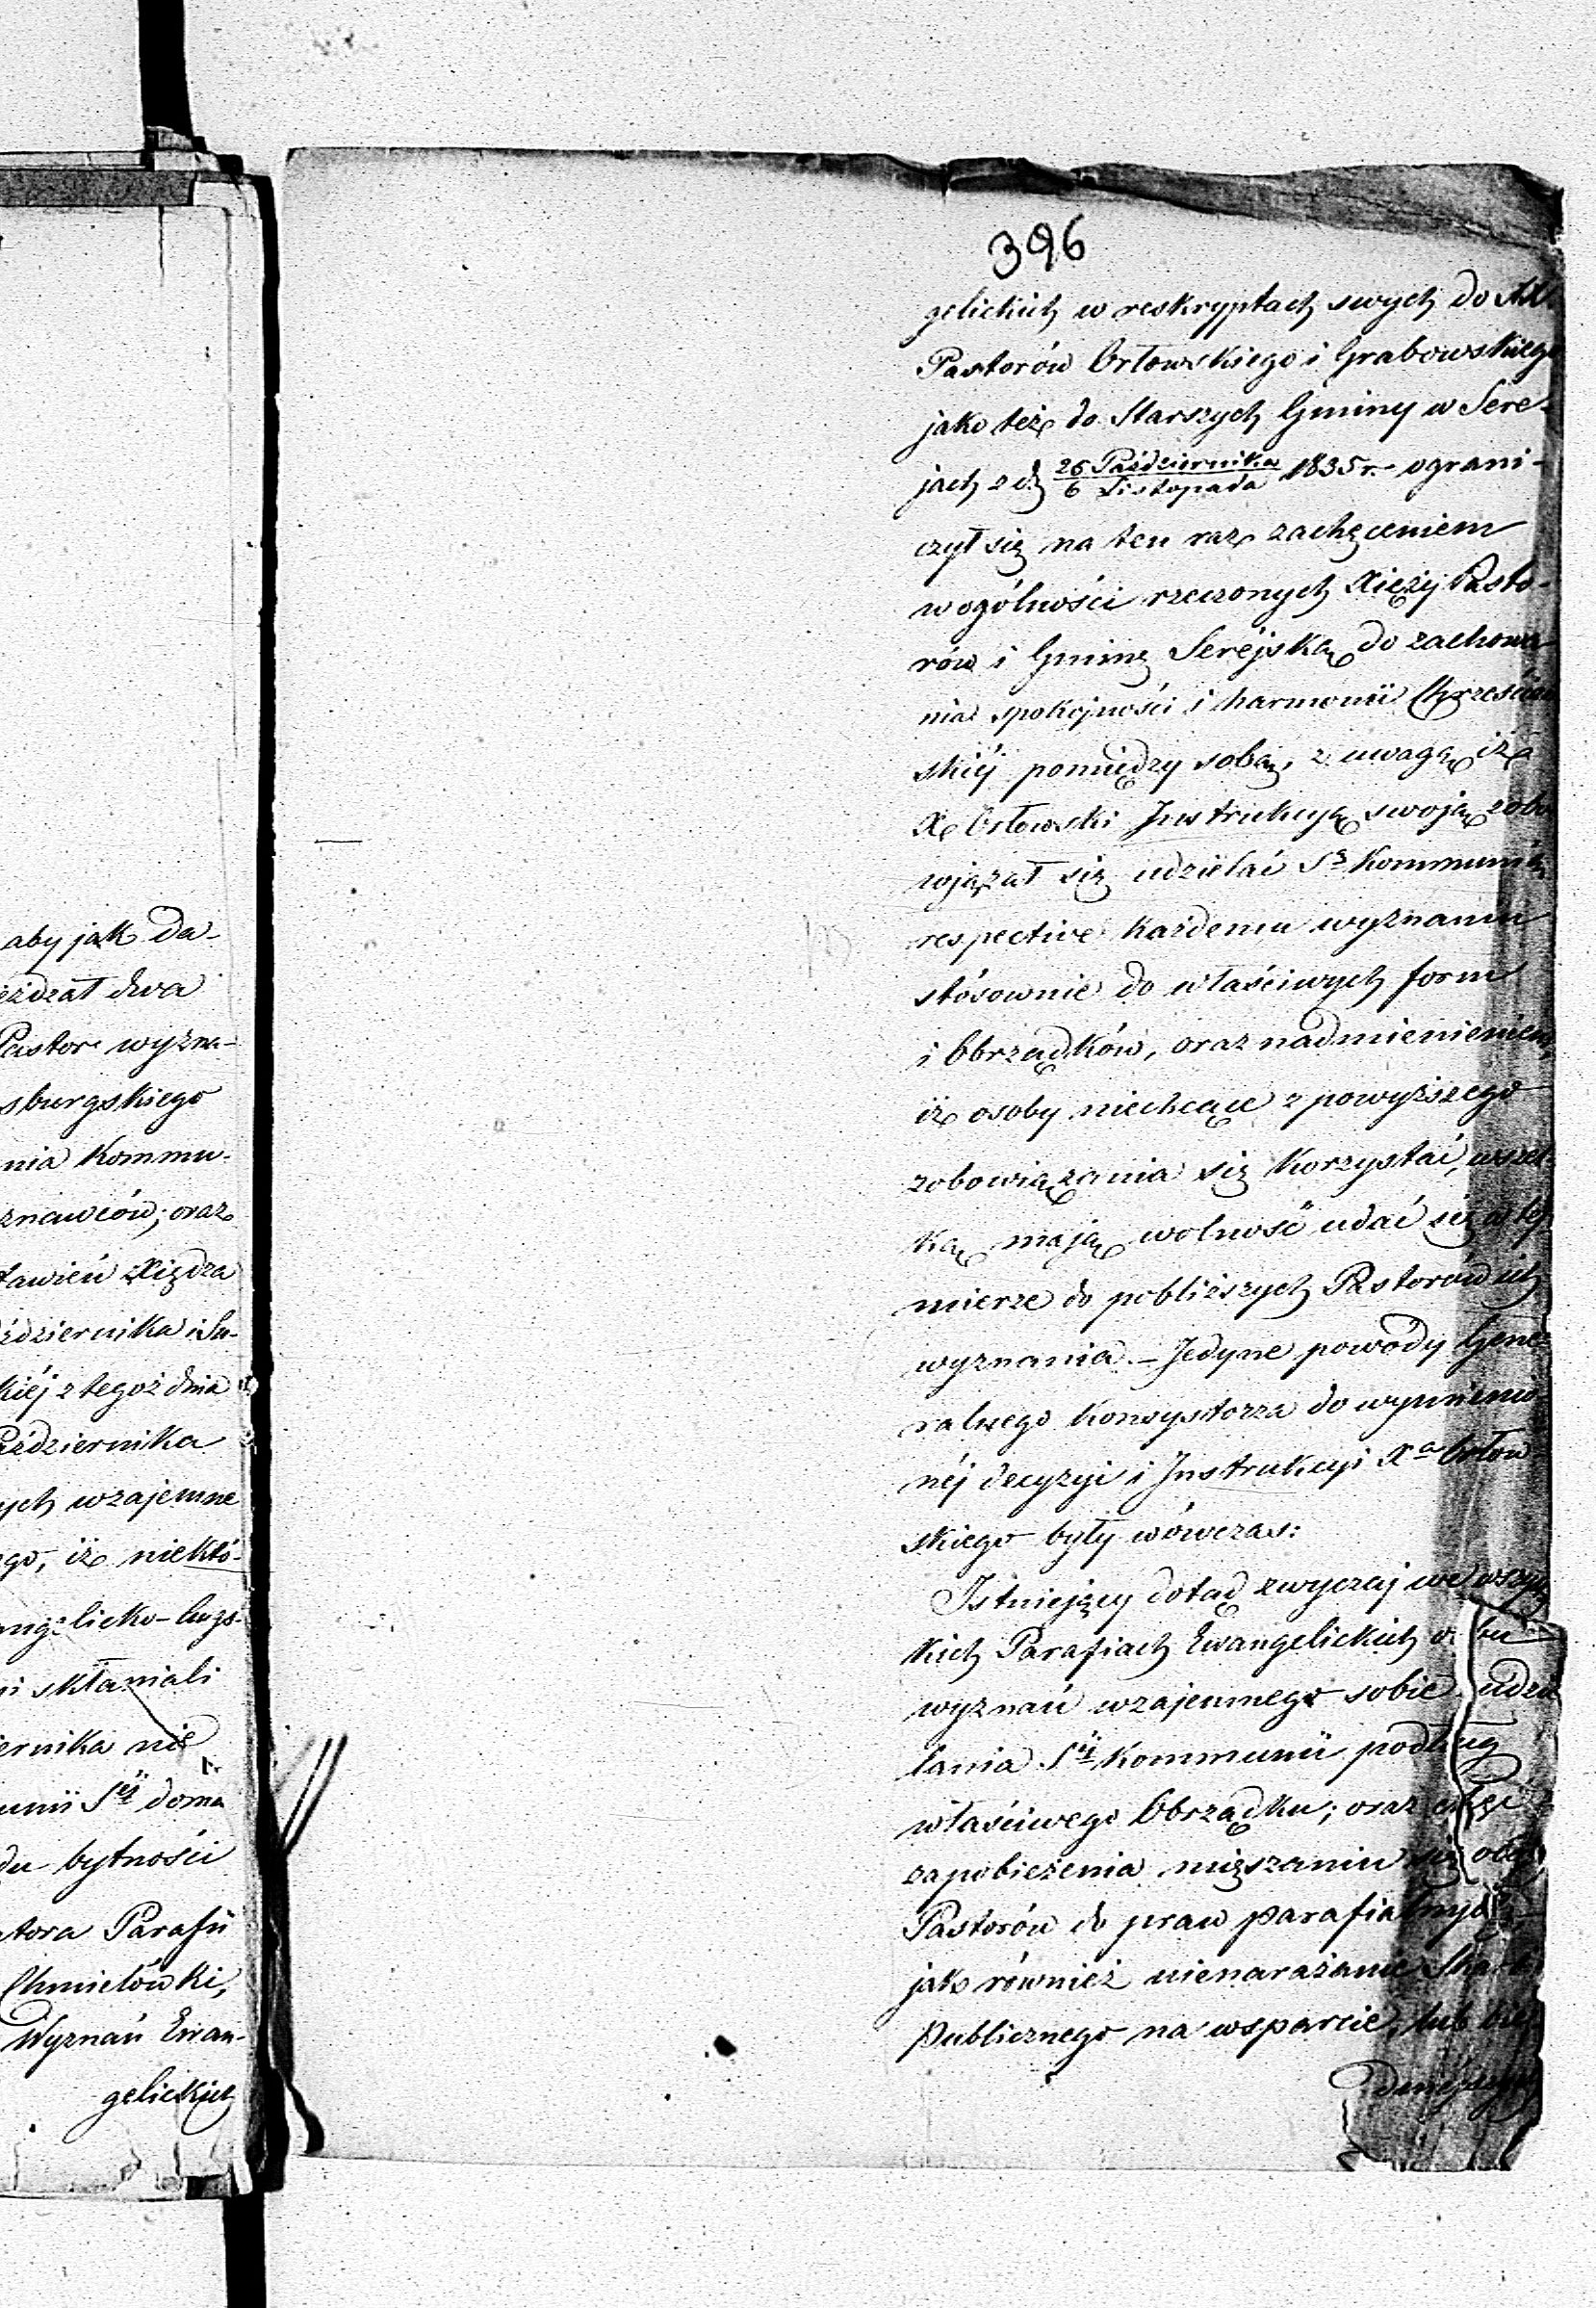 aby jak da-
eżdzał dwa
Pastor wyzna-
sburgskiego
nia Kommu-
znawców; oraz
tawień Xiędza
ździernika i Su-
kiéj z tegoż dnia
Października
ych wzajemne
ego, iż niektó-
angelicko-Augs-
i skłaniali
iernika nie
unii Sęj doma
du bytności
tora Parafii
Chmielówki,
Wyznań Ewan-
gelickich
396
gelickich w reskryptach swych do XX
Pastorów Orłowskiego i Grabowskiego
jako też do Starszych Gminy w Sere-
jach z d. 26 Października / 6 Listopada 1835 r. ograni-
czył się na ten raz zachęceniem
w ogólności rzeczonych Xięży Pasto-
rów i Gminę Serejską do zachowa
nia spokojności i harmonii Chrześcian
skiéj pomiędzy sobą, z uwagą iż
X Orłowski Instrukcyą swoją zobo
wjązał się udzielać Sę Kommunią
respective każdemu wyznaniu
stósownie do właściwych form
i Obrządków, oraz nadmienieniem,
iż osoby niechcące z powyższego
zobowiązania się Korzystać, wszel-
ką mają wolność udać się w téj
mierze do pobliższych Pastorów ich
wyznania. – Jedyne powody Gene-
ralnego Konsystorza do wymienio-
néj decyzyi i Instrukcyi Xa Orłow-
skiego były wówczas:
Istniejący dotąd zwyczaj we wszys
kich Parafiach Ewangelickich obu
wyznań wzajemnego sobie udzie
lania Sęj Kommunii podług
właściwego Obrządku; oraz chęć
zapobieżenia mięszaniu się obcych
Pastorów do praw parafialnych
jak również nienarażanie Skarbu
Publicznego na wsparcie, lub